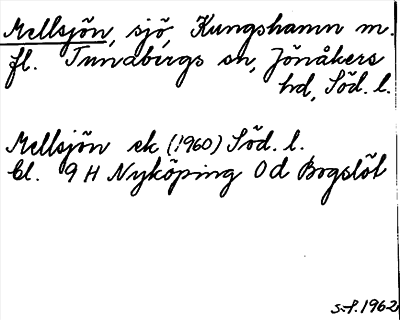 Mellsjön, sjö, Kungshamn m.
fl. Tunabergs sn, Jönåkers
hd, Söd. l.
Mellsjön ek (1960) Söd. l.
bl. 9 H Nyköping 0 d Bogslöt
s.f. 1962